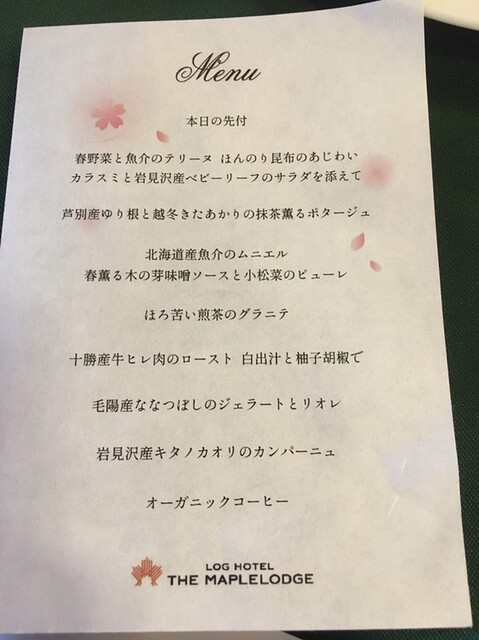 Menu
本日の先付
春野菜と魚介のテリーヌ ほんのり昆布のあじわい
カラスミと岩見沢産ベビーリーフのサラダを添えて
芦別産ゆり根と越冬きたあかりの抹茶薫るポタージュ
北海道産魚介のムニエル
春薫る木の芽味噌ソースと小松菜のピューレ
ほろ苦い煎茶のグラニテ
十勝産牛ヒレ肉のロースト 白出汁と柚子胡椒で
毛陽産ななつぼしのジェラートとリオレ
岩見沢産キタノカオリのカンパーニュ
オーガニックコーヒー
LOG HOTEL
THE MAPLELODGE